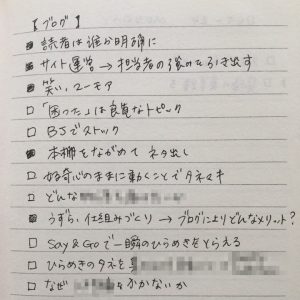 【ブログ】
■ 読者は誰か明確に
■ サイト運営 → 担当者の強みを引き出す
■ 笑い、ユーモア
□ 「困った」は良質なトピック
□ BJでストック
■ 本棚をながめて ネタ出し
□ 好奇心のままに動くことでタネマキ
□ どんな
■ うずら、仕組みづくり → ブログによりどんなメリット?
□ Say & Goで一瞬のひらめきをとらえる
□ ひらめきのタネを
□ なぜ をかかないか